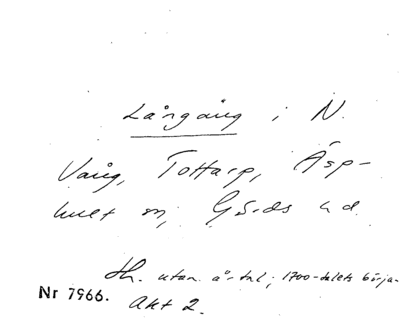 Långäng i N.
Vång, Tottarp, Äsp-
hult sn, Gärds hd.
Hs. utan årtal; 1700-talets börja-
Nr 7966. Akt 2.